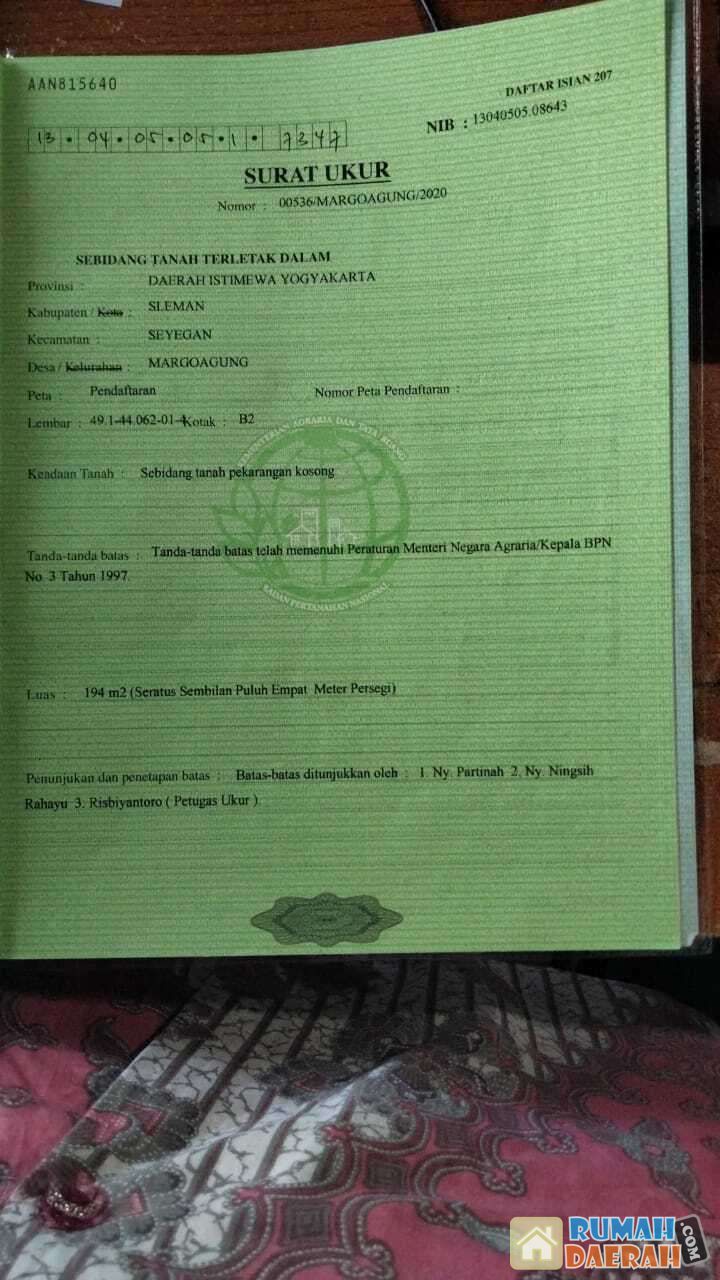 AAN815640
DAFTAR ISIAN 207
13.04.05.05.1. 7347
NIB : 13040505.08643
SURAT UKUR
Nomor : 00536/MARGOAGUNG/2020
SEBIDANG TANAH TERLETAK DALAM
Provinsi : DAERAH ISTIMEWA YOGYAKARTA
Kabupaten / Kota : SLEMAN
Kecamatan : SEYEGAN
Desa / Kelurahan : MARGOAGUNG
Peta : Pendaftaran Nomor Peta Pendaftaran :
Lembar : 49.1-44.062-01-4 Kotak : B2
KEMENTERIAN AGRARIA DAN TATA RUANG
Keadaan Tanah : Sebidang tanah pekarangan kosong
Tanda-tanda batas : Tanda-tanda batas telah memenuhi Peraturan Menteri Negara Agraria/Kepala BPN
No. 3 Tahun 1997.
BADAN PERTANAHAN NASIONAL
Luas : 194 m2 (Seratus Sembilan Puluh Empat Meter Persegi)
Penunjukan dan penetapan batas : Batas-batas ditunjukkan oleh : 1. Ny. Partinah 2. Ny. Ningsih
Rahayu 3. Risbiyantoro ( Petugas Ukur ).
RUMAH
DAERAH
.COM